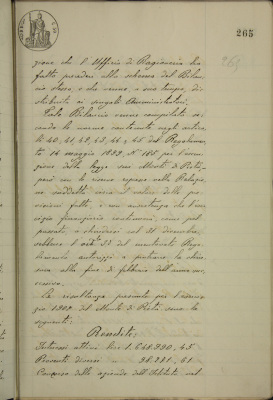 265
zione che l'Ufficio di Ragioneria ha
fatto precedere allo schema del Bilan-
cio stesso, e che venne, a suo tempo, di-
stribuita ai singoli Amministratori.
Tale Bilancio venne compilato se-
condo le norme contenute negli articoli
40, 41, 42, 43, 44 e 45 del Regolamen-
to 14 maggio 1899, N° 185 per l'esecu-
zione della legge sui Monti di Pietà,
però
suddetta circa il valore delle pre-
visioni fatte, e con avvertenza che l'eser-
cizio finanziario continuerà, come pel
passato, a chiudersi col 31 dicembre,
sebbene l'art. 53 del mentovato Rego-
lamento autorizzi a protrarre la chiu-
sura alla fine di febbraio dell'anno suc-
cessivo.
Le risultanze presunte per l'eserci-
zio del Monte di Pietà sono le
seguenti:
Rendite:
Interessi attivi Lire 1.648.390,45
Proventi diversi " 36.281,61
Concorso delle aziende dell'Istituto nel